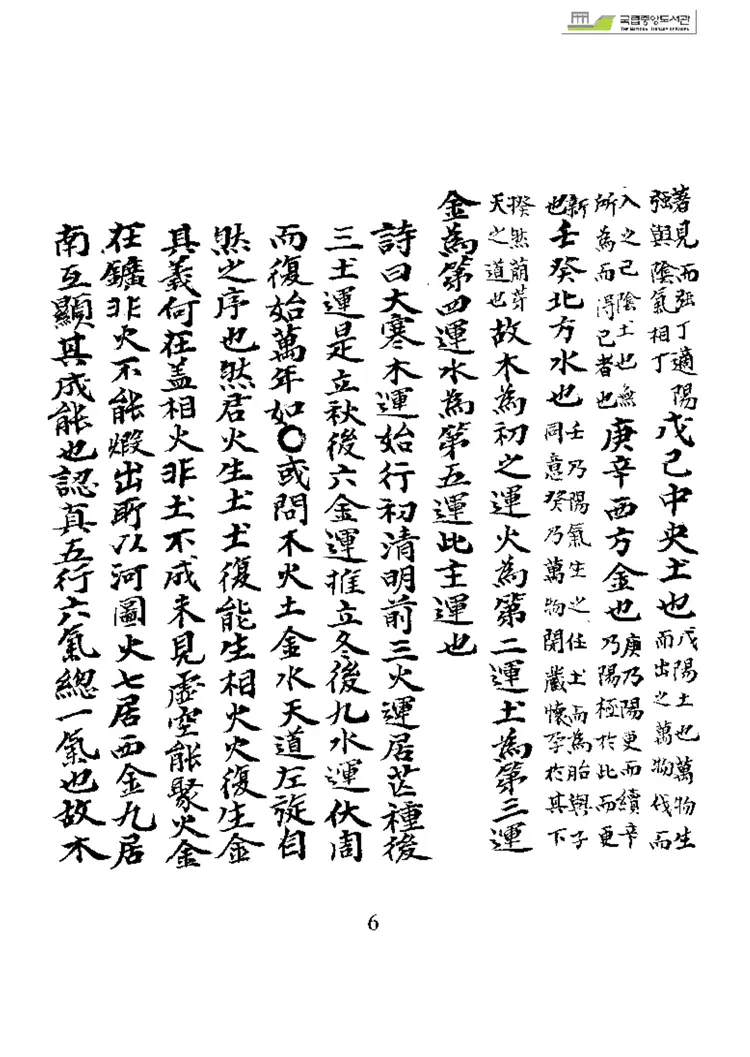 국립중앙도서관
THE NATIONAL LIBRARY OF KOREA
著見而强丁適陽强與陰氣相丁戊己中央土也戊陽土也萬物生而出之萬物伐而
入之己陰土也無所為而得己者也庚辛西方金也庚乃陽更而續辛乃陽極於此而更
新也壬癸北方水也壬乃陽氣生之任士而為胎與子同意癸乃萬物閉藏懷孕於其下
揆然萌芽天之道也故木為初之運火為第二運土為第三運
金為第四運水為第五運此主運也
詩曰大寒木運始行初清明前三火運居芒種後
三土運是立秋後六金運推立冬後九水運伏周
而復始萬年如〇或問木火土金水天道左旋自
然之序也然君火生土土復能生相火火復生金
其義何在盖相火非土不成未見虛空能聚火金
在鑛非火不能煅出所以河圖火七居西金九居
南互顯其成能也認真五行六氣總一氣也故木
6